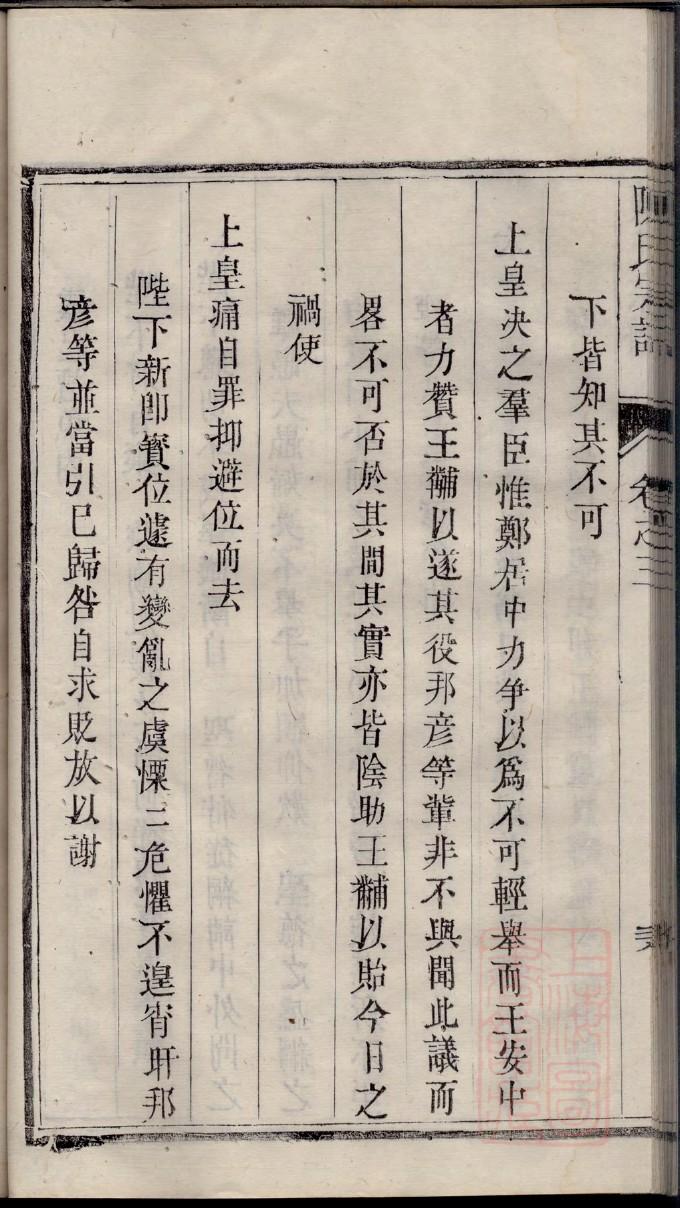 下皆知其不可
上皇决之羣臣惟鄭居中力争以爲不可輕舉而王安中
者力贊王黼以遂其役邦彦等輩非不與聞此議而
畧不可否於其間其實亦皆陰助王黼以貽今日之
禍使
上皇痛自罪抑避位而去
陛下新卽寳位遽有變亂之虞慄二危懼不遑宵旰邦
彦等並當引已歸咎自求貶放以謝
陳氏宗譜
卷之三